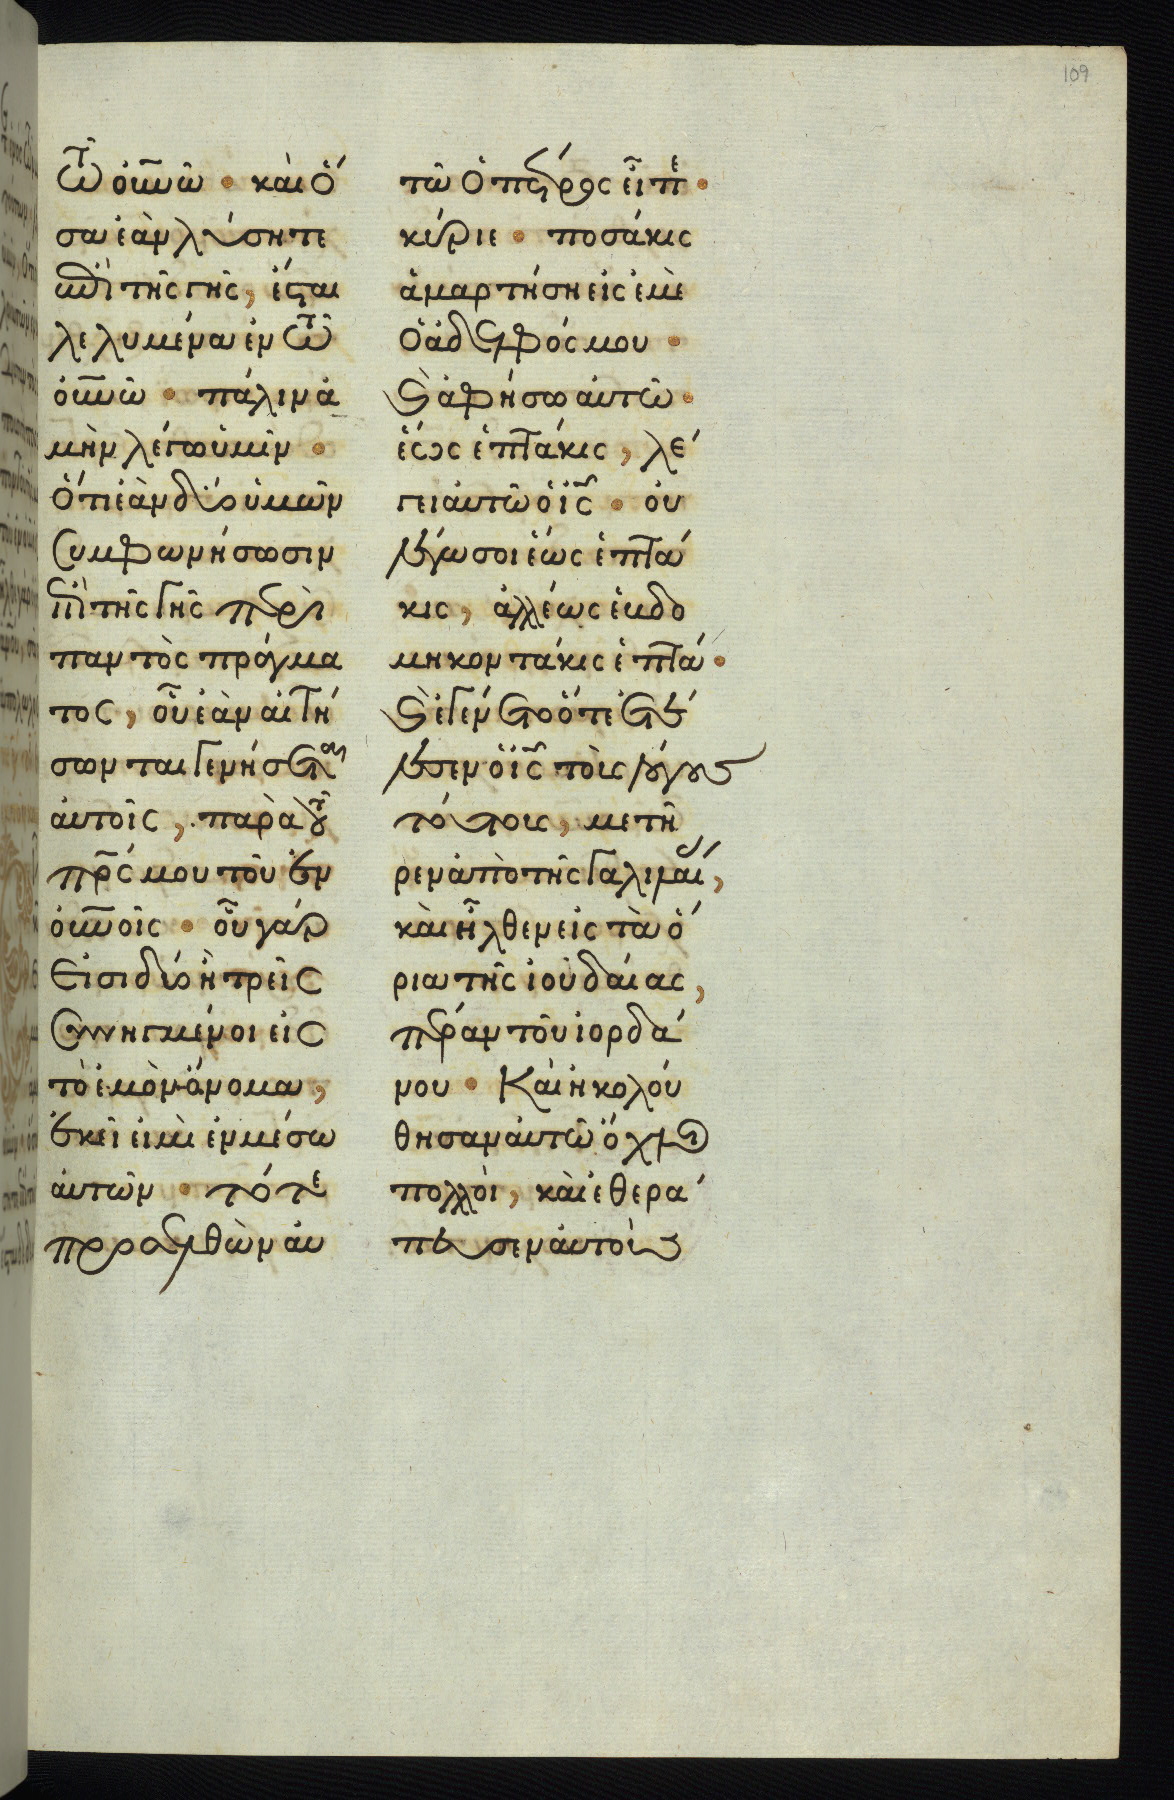 109
τῶ οὐνῶ · καὶ ὅ
σα ἐὰν λύσητε
ἐπὶ τῆς γῆς, ἔσται
λελυμένα ἐν τῶ
οὐνῶ · πάλιν ἀ
μὴν λέγω ὑμῖν ·
ὅτι ἐὰν δύο ὑμῶν
συμφωνήσωσιν
ἐπὶ τῆς γῆς περὶ
παντὸς πράγμα
τος, οὗ ἐὰν αἰτή
σωνται γενήσεται
αὐτοῖς, παρὰ τοῦ
πρς μου τοῦ ἐν
οὐνοῖς · οὗ γάρ
εἰσι δύο ἢ τρεῖς
συνηγμένοι εἰς
τὸ ἐμὸν ὄνομα,
ἐκεῖ εἰμὶ ἐν μέσω
αὐτῶν · τότε
προσελθὼν αὐ
τῶ ὁ πέτρος εἶπε ·
κύριε · ποσάκις
ἁμαρτήση εἰς ἐμὲ
ὁ ἀδελφός μου ·
καὶ ἀφήσω αὐτῶ ·
ἕως ἑπτάκις, λέ
γει αὐτῶ ὁ ις · οὐ
λέγω σοι ἕως ἑπτά
κις, ἀλλ' ἕως ἑβδο
μηκοντάκις ἑπτά ·
καὶ ἐγένετο ὅτε ἐτέ
λεσεν ὁ ις τοὺς λόγους
τούτους, μετῆ
ρεν ἀπὸ τῆς γαλιλαίας,
καὶ ἦλθεν εἰς τὰ ὅ
ρια τῆς ἰουδαίας,
πέραν τοῦ ἰορδά
νου · Καὶ ἠκολού
θησαν αὐτῶ ὄχλοι
πολλοὶ, καὶ ἐθερά
πευσεν αὐτούς